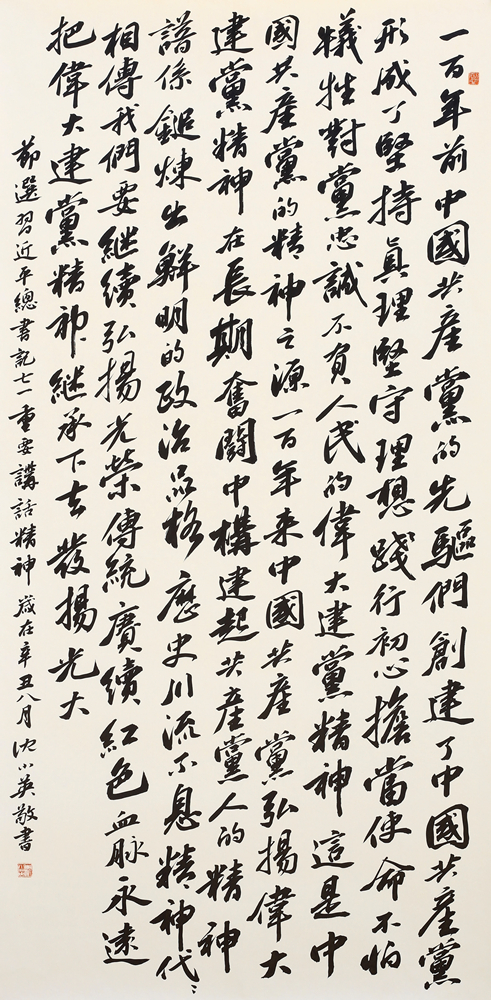 一百年前中國共產黨的先驅們創建了中國共產黨
形成了堅持真理堅守理想踐行初心擔當使命不怕
犧牲對黨忠誠不負人民的偉大建黨精神這是中
國共產黨的精神之源一百年來中國共產黨弘揚偉大
建黨精神在長期奮鬪中構建起共產黨人的精神
譜係鎚煉出鮮明的政治品格歷史川流不息精神代〻
相傳我們要繼續弘揚光榮傳統賡續紅色血脈永遠
把偉大建黨精神繼承下去發揚光大
節選習近平總書記七一重要講話精神 歲在辛丑八月沈小英敬書